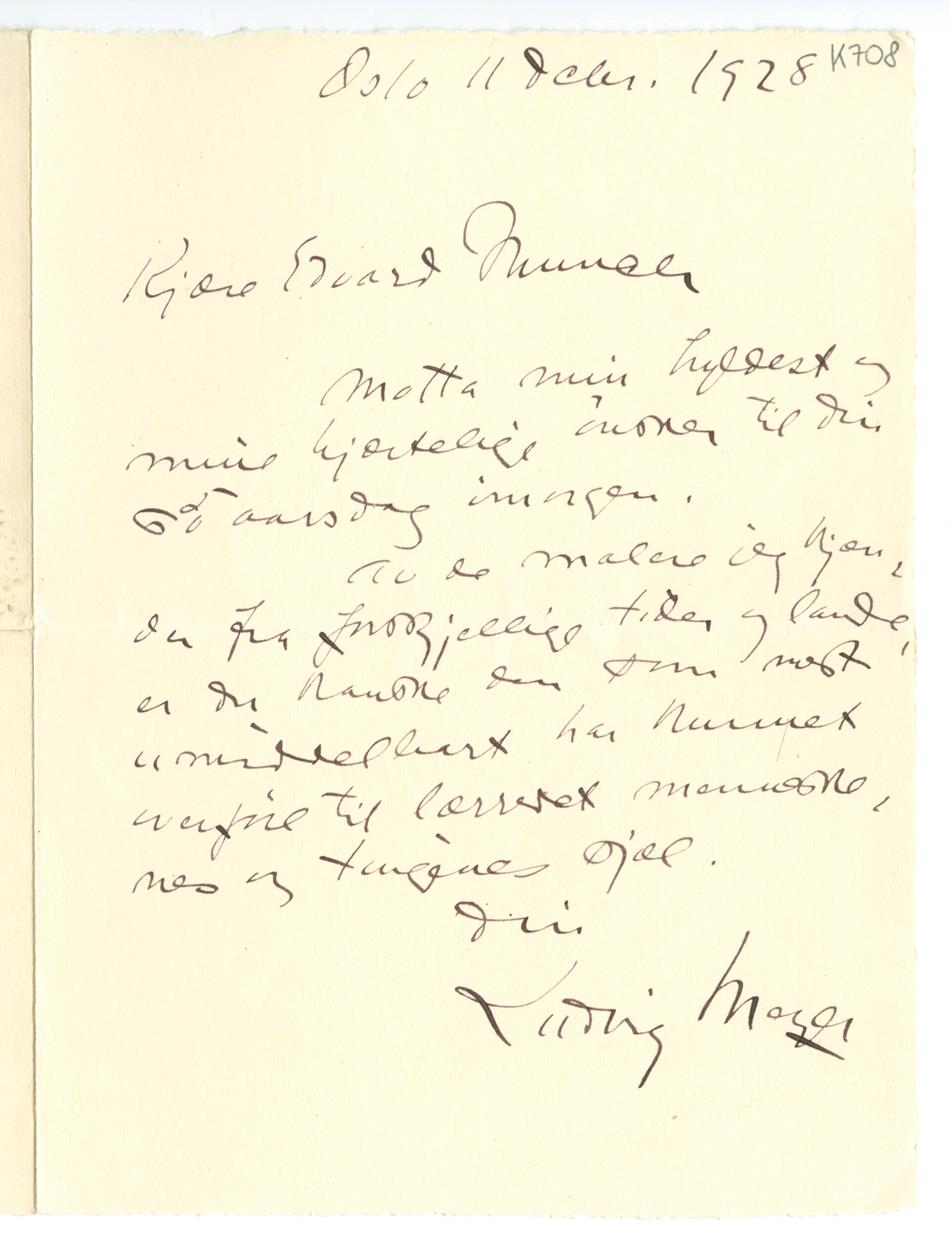 Oslo 11 Debr. 1928
K708
Kjære Edvard Munch
Motta min hyldest og
mine hjærtelige önsker til din
65 aarsdag imorgen.
Av de malere jeg kjen,
der fra forskjellige tider og lande,
er du kanske den som mest
umiddelbart har kunnet
overföre til lærredet menneske,
nes og tingenes sjæl.
Din
Ludvig Meyer